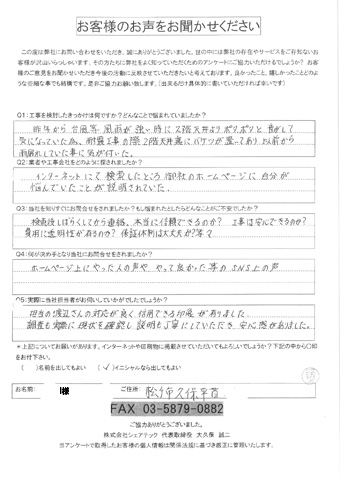 お客様のお声をお聞かせください
この度は弊社にお問い合わせをいただき、誠にありがとうございました。世の中には弊社の存在やサービスをご存知ないお
客様が沢山いらっしゃいます。その方たちに弊社をよく知っていただくためのアンケートにご協力いただけるでしょうか？お客
様のご意見をお聞かせいただき今後の活動に反映させていただきたいと考えております。良かったこと、嬉しかったことどのよ
うな些細な事でも結構です。是非ご協力お願い致します。(出来るだけ具体的に書いていただければ幸いです)
Q1:工事を検討したきっかけは何ですか？どんなことで悩まれていましたか？
昨年から台風等、風雨が強い時に2階天井よりポタポタと音がして
気になっていた為、耐震工事の際2階天井裏にバケツが置いてあり以前から
雨漏れしていた事に気が付いた。
Q2:業者や工事会社をどのように探されましたか？
インターネットにて検索したところ御社のホームページに自分が
悩んでいたことが説明されていた。
Q3:当社を知りすぐにお問合せをしましたか？もしお問合せしなかったとしたらどんなことがご不安でしたか？
検索後しばらくしてから連絡、本当に信頼できるのか？ 工事は安心できるのか？
費用に透明性が有るのか？ 保証体制は大丈夫か？等々
Q4:何が決め手となり当社にお問合せをされましたか？
ホームページ上にやった人の声や やって良かった等のSNS上の声
Q5:実際に当社担当者がお伺いしていかがでしたでしょうか？
担当の渡辺さんの対応が良く信用できる印象が有りました。
調査も実際に現状を確認し説明も丁寧にしていただき、安心感が出ました。
*上記についてお願いがあります。インターネットや印刷物に掲載させていただいてもよろしいでしょうか？下記の中から〇印
をお付下さい。
( )名前を出してもよい (✓)イニシャルなら出してもよい
お名前: 様 ご住所:
FAX 03-5879-0882
ご協力ありがとうございました。
株式会社シェアテック 代表取締役 大久保 誠二
※アンケートで取得したお客様の個人情報は関係法規に基づき厳正に管理致します。